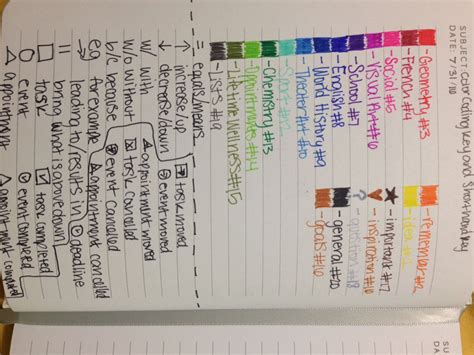 SUBJECT:
DATE: 7/31/10
beyond shorthand key
-Geometry #3
-French #4
-Social
-Visual Art
-School #7
-English #8
-World History #9
-Theater Art
-Sport #12
-Chemistry
-Lifetime Wellness #15
-Lists #19
-remember #2
-idea
-important #17
-inspiration
-question #18
-general #20
-goals
= equals/means
↑ increase/up
↓ decrease/down
w/ with
w/o without
b/c because
e.g. for example
→ leading to/results in
bring what is above down
□ task
○ event
△ appointment
task moved
event moved
appointment moved
task cancelled
event cancelled
appointment cancelled
deadline
task completed
event completed
appointment completed